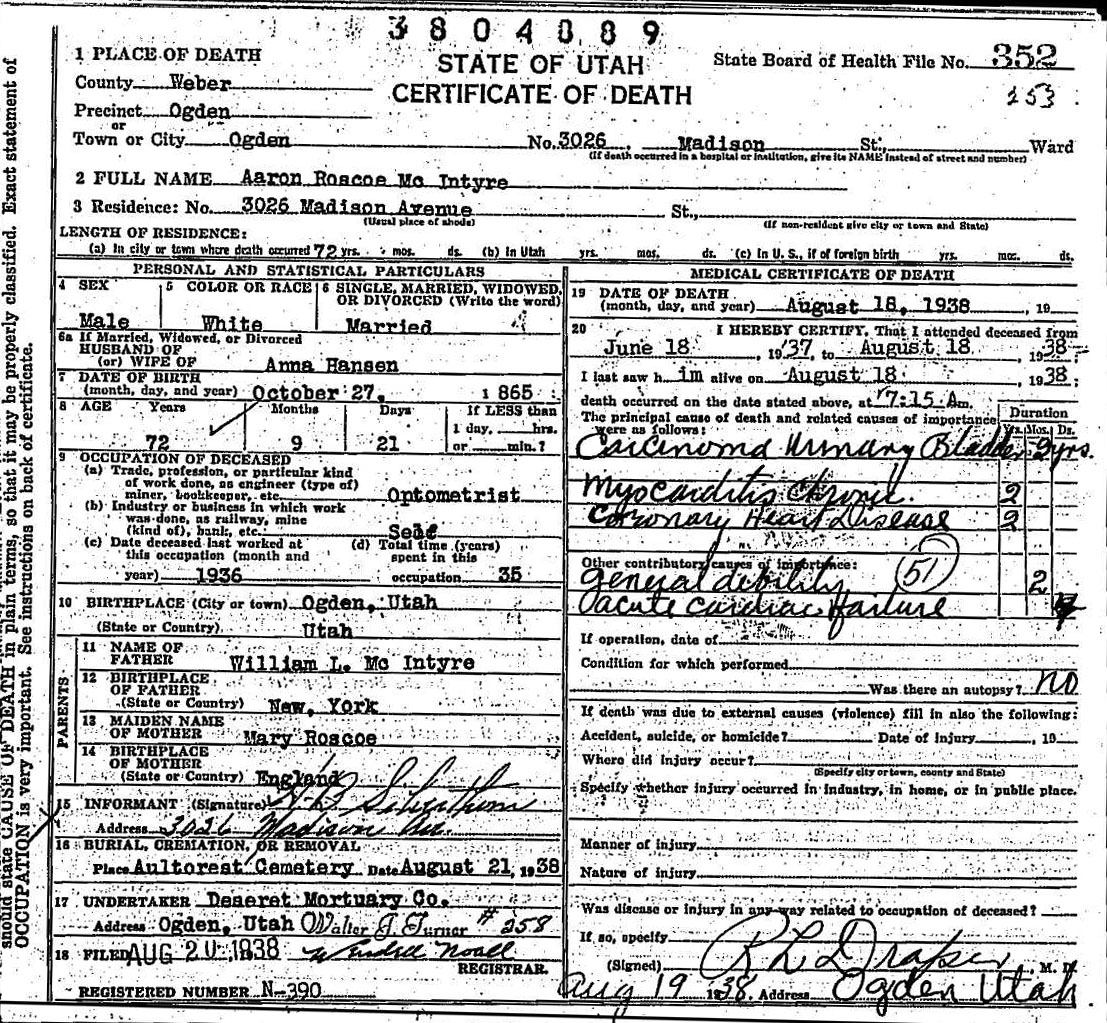 3804089
1 PLACE OF DEATH
STATE OF UTAH
State Board of Health File No. 352
County Weber
CERTIFICATE OF DEATH
253
Precinct Ogden
or
Town or City Ogden No. 3026 Madison St., Ward
(If death occurred in a hospital or institution, give its NAME instead of street and number)
2 FULL NAME Aaron Roscoe Mc Intyre
3 Residence: No. 3026 Madison Avenue St.,
(Usual place of abode) (If non-resident give city or town and State)
LENGTH OF RESIDENCE:
(a) In city or town where death occurred 72 yrs. mos. ds. (b) In Utah yrs. mos. ds. (c) In U. S., if of foreign birth yrs. mos. ds.
PERSONAL AND STATISTICAL PARTICULARS
4 SEX 5 COLOR OR RACE 6 SINGLE, MARRIED, WIDOWED, OR DIVORCED (Write the word)
Male White Married
6a If Married, Widowed, or Divorced
HUSBAND OF
(or) WIFE OF Anna Hansen
7 DATE OF BIRTH
(month, day, and year) October 27, 1865.
8 AGE Years Months Days If LESS than
1 day, hrs.
72 9 21 or min.?
9 OCCUPATION OF DECEASED
(a) Trade, profession, or particular kind
of work done, as engineer (type of)
miner, bookkeeper, etc. Optometrist
(b) Industry or business in which work
was done, as railway, mine
(kind of), bank, etc. Self
(c) Date deceased last worked at (d) Total time (years)
this occupation (month and spent in this
year) 1936 occupation 35
10 BIRTHPLACE (City or town) Ogden, Utah
(State or Country) Utah
PARENTS
11 NAME OF
FATHER William L. Mc Intyre
12 BIRTHPLACE
OF FATHER
(State or Country) New York
13 MAIDEN NAME
OF MOTHER Mary Roscoe
14 BIRTHPLACE
OF MOTHER
(State or Country) England
15 INFORMANT (Signature)
Address 3026 Madison Ave.
16 BURIAL, CREMATION, OR REMOVAL
Place Aultorest Cemetery Date August 21, 1938
17 UNDERTAKER Deseret Mortuary Co.
Address Ogden, Utah Walter J. Turner # 258
18 FILED AUG 20 1938 Noall
REGISTRAR.
REGISTERED NUMBER N-390
MEDICAL CERTIFICATE OF DEATH
19 DATE OF DEATH
(month, day, and year) August 18, 1938 , 19
20 I HEREBY CERTIFY, That I attended deceased from
June 18 , 1937, to August 18 , 1938
I last saw him alive on August 18 , 1938;
death occurred on the date stated above, at 7:15 Am.
The principal cause of death and related causes of importance
were as follows:
Duration
Yrs. Mos. Ds.
Carcinoma Urinary Bladder 2 yrs.
Myocarditis chronic. 2
Coronary Heart Disease 2
Other contributory causes of importance:
General debility 51 2
acute cardiac failure
If operation, date of
Condition for which performed
Was there an autopsy? no
If death was due to external causes (violence) fill in also the following:
Accident, suicide, or homicide? Date of injury , 19
Where did injury occur?
(Specify city or town, county and State)
Specify whether injury occurred in industry, in home, or in public place.
Manner of injury
Nature of injury
Was disease or injury in any way related to occupation of deceased?
If so, specify
(Signed) R L Draper M. D.
Aug 19 1938. Address Ogden Utah
should state CAUSE OF DEATH in plain terms, so that it may be properly classified. Exact statement of
OCCUPATION is very important. See instructions on back of certificate.